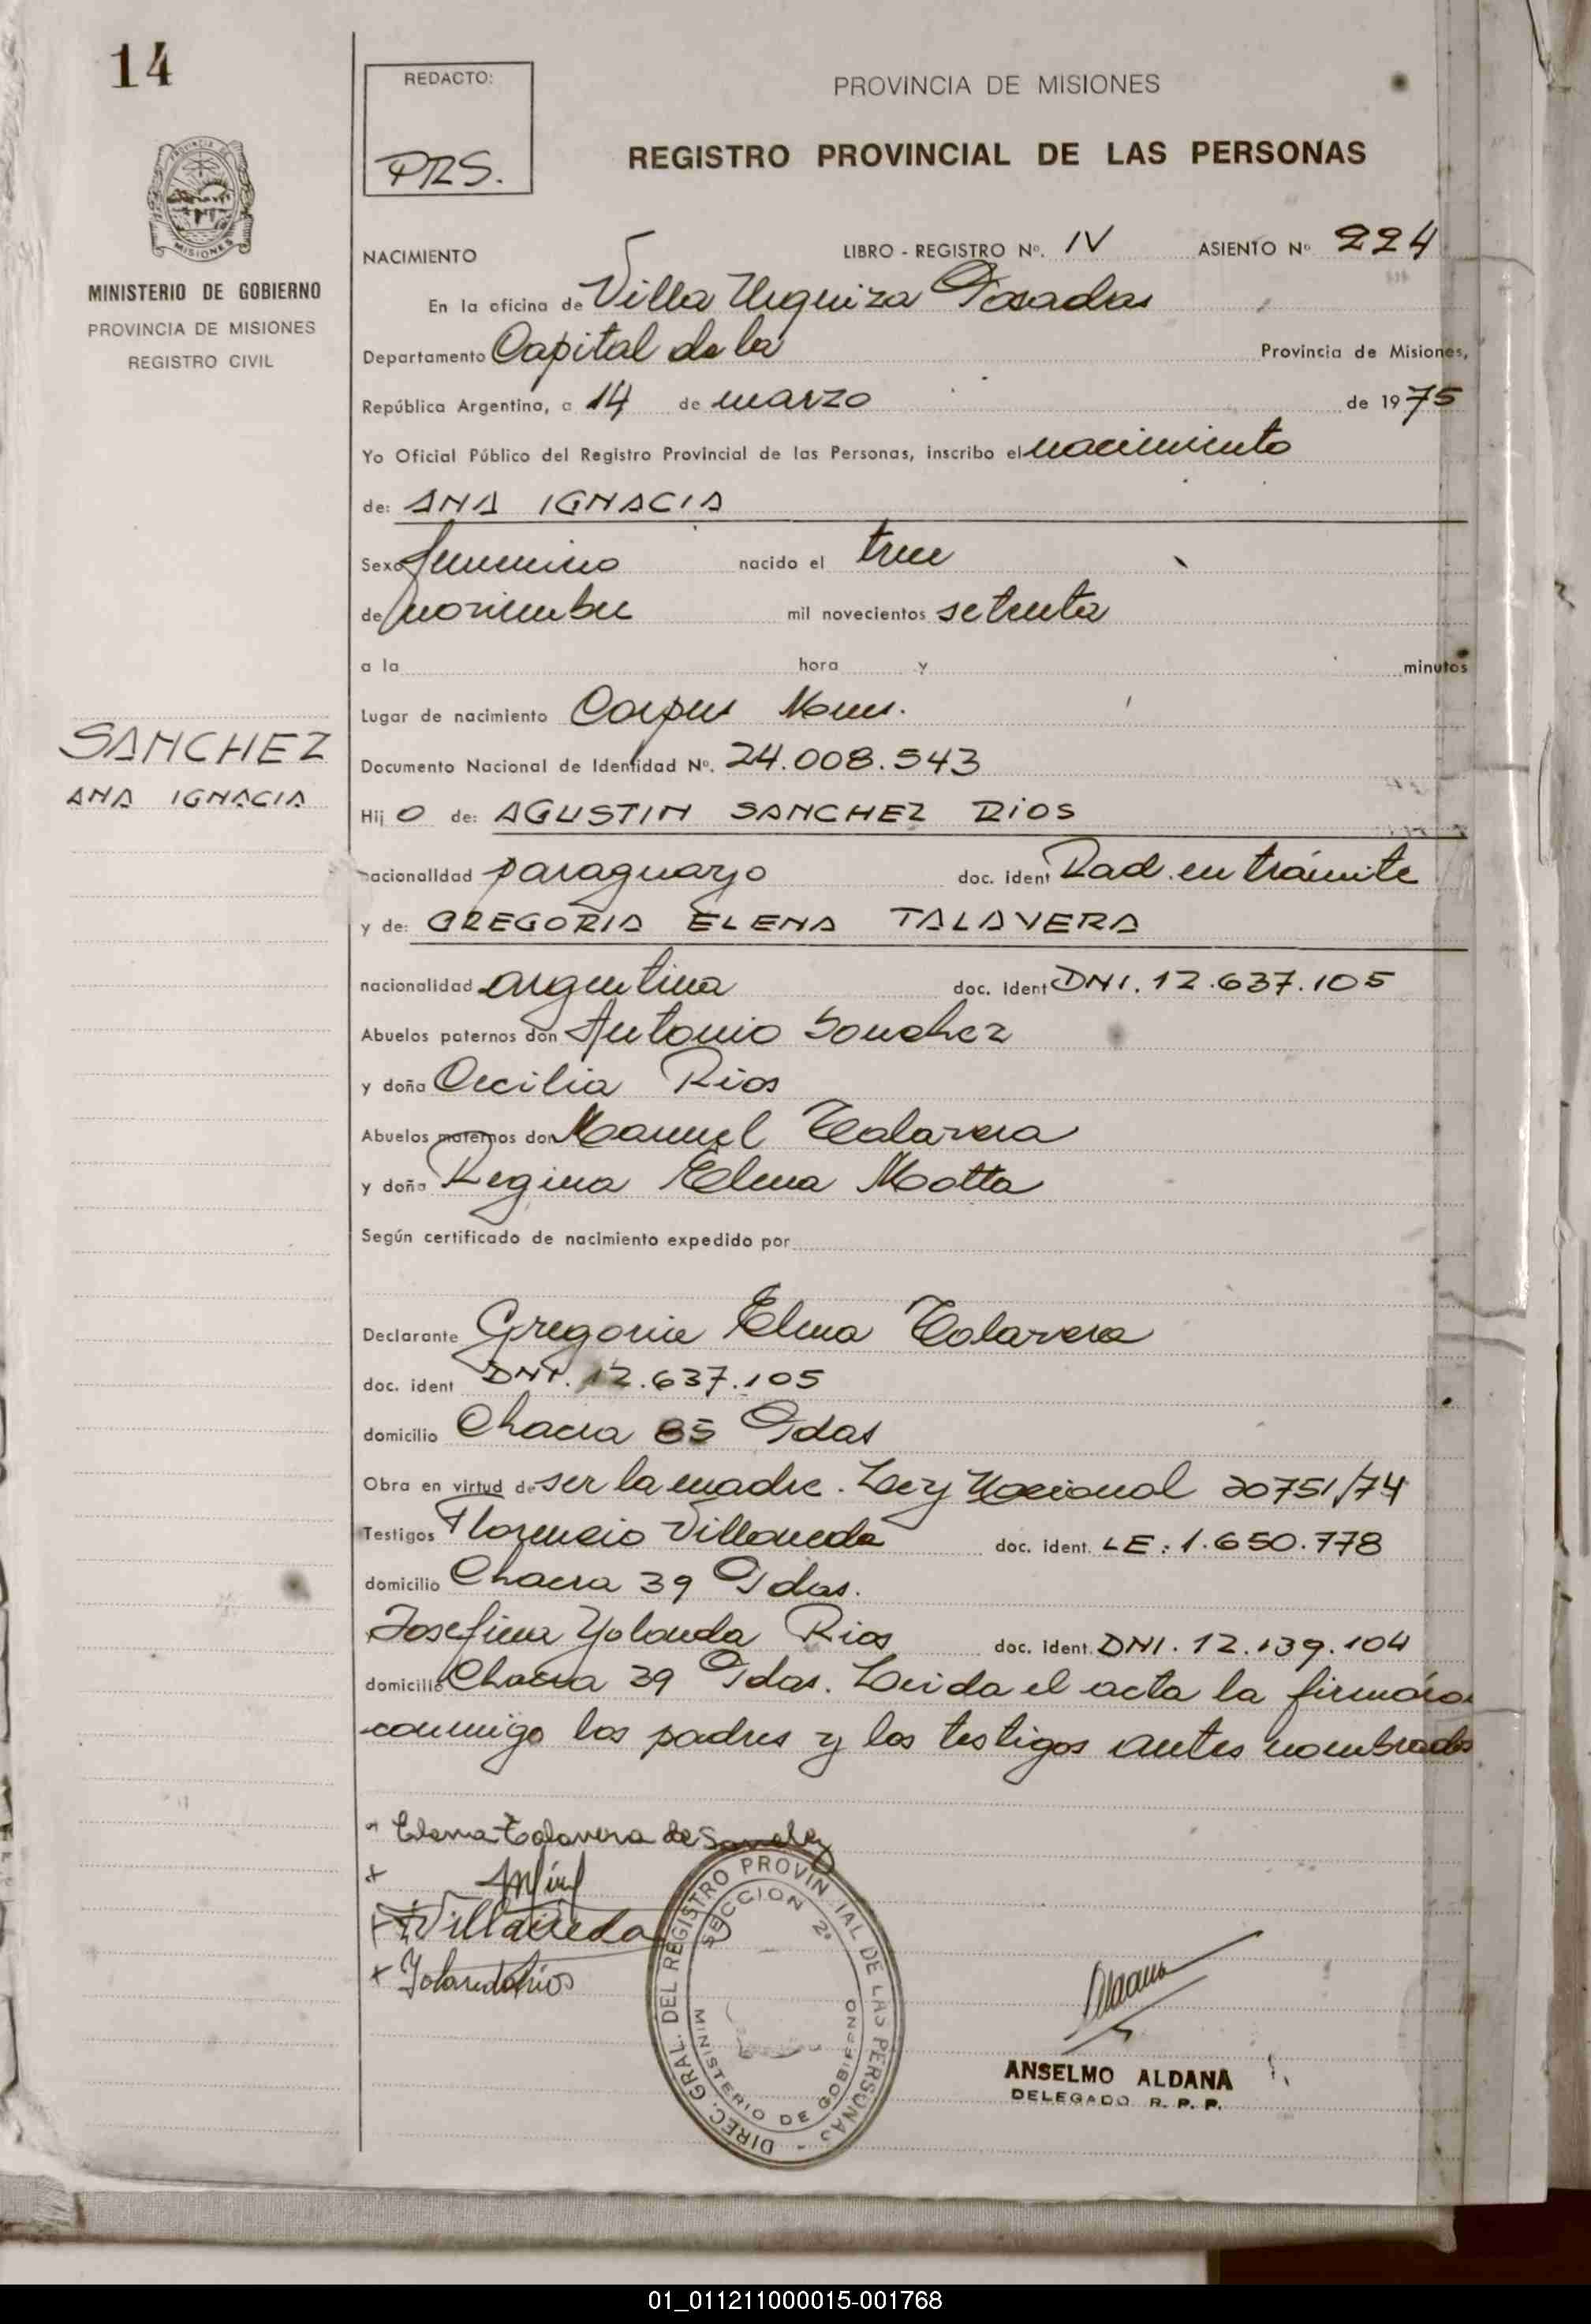 14
REDACTO:
PRS.
PROVINCIA DE MISIONES
REGISTRO PROVINCIAL DE LAS PERSONAS
PROVINCIA DE
MISIONES
MINISTERIO DE GOBIERNO
PROVINCIA DE MISIONES
REGISTRO CIVIL
NACIMIENTO LIBRO - REGISTRO Nº. IV ASIENTO Nº 224
En la oficina de Villa Urquiza Posadas
Departamento Capital de la Provincia de Misiones,
República Argentina, a 14 de marzo de 1975
Yo Oficial Público del Registro Provincial de las Personas, inscribo el nacimiento
de: ANA IGNACIA
Sexo femenino nacido el trece
de noviembre mil novecientos setenta
a la hora y minutos
Lugar de nacimiento Corpus Mnes.
SANCHEZ
ANA IGNACIA
Documento Nacional de Identidad Nº. 24.008.543
Hij o de: AGUSTIN SANCHEZ RIOS
nacionalidad paraguayo doc. ident Rad. en trámite
y de: GREGORIA ELENA TALAVERA
nacionalidad argentina doc. ident DNI. 12.637.105
Abuelos paternos don Antonio Sanchez
y doña Cecilia Rios
Abuelos maternos don Manuel Talavera
y doña Regina Elena Motta
Según certificado de nacimiento expedido por
Declarante Gregoria Elena Talavera
doc. ident DNI. 12.637.105
domicilio Chacra 85 Pdas
Obra en virtud de ser la madre. Ley Nacional 20751/74
Testigos Florencio Villaneda doc. ident. LE: 1.650.778
domicilio Chacra 39 Pdas.
Josefina Yolanda Rios doc. ident. DNI. 12.139.104
domicilio Chacra 39 Pdas. Leida el acta la firmaron
conmigo los padres y los testigos antes nombrados
Elena Talavera de Sanchez
Villaneda
Yolanda Rios
DIREC. GRAL. DEL REGISTRO PROVINCIAL DE LAS PERSONAS -
SECCION 2ª
MINISTERIO DE GOBIERNO
Aldana
ANSELMO ALDANA
DELEGADO R. P. P.
01_011211000015-001768